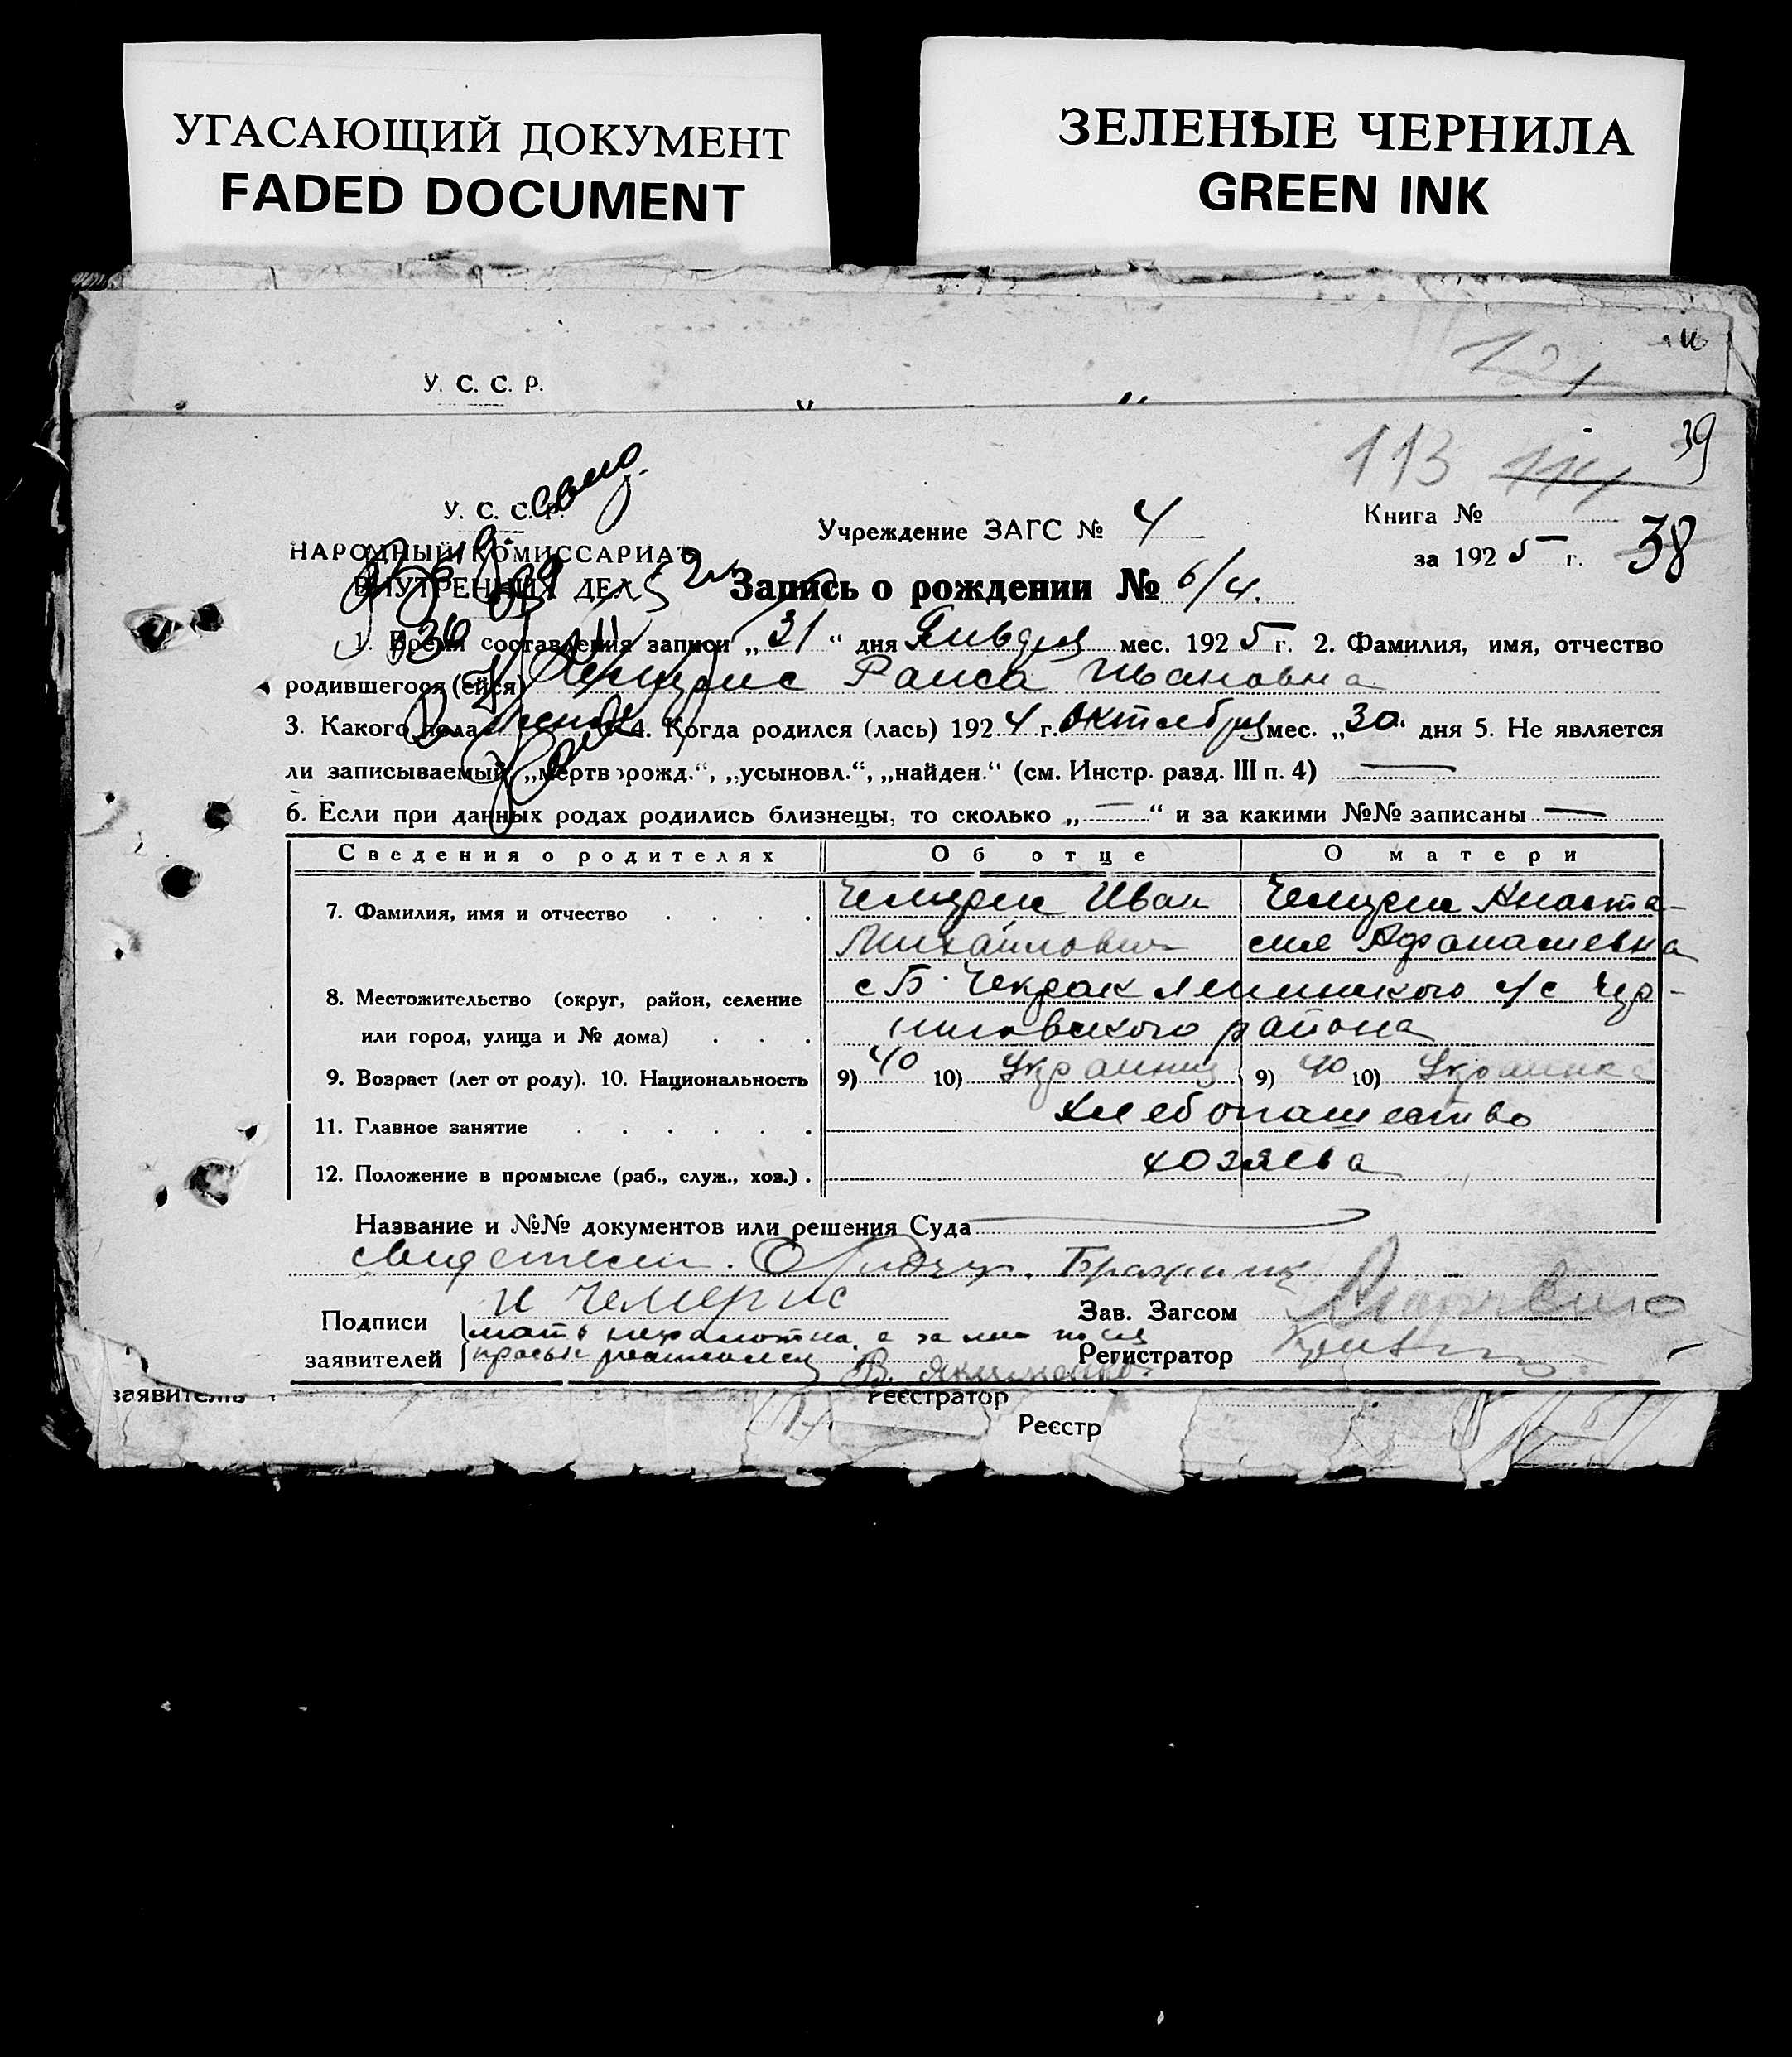 УГАСАЮЩИЙ ДОКУМЕНТ
FADED DOCUMENT
ЗЕЛЕНЫЕ ЧЕРНИЛА
GREEN INK
У. С. С. Р.
113
39
У. С. С. Р.
Учреждение ЗАГС № 4
Книга №
НАРОДНЫЙ КОМИССАРИАТ
за 1925 г. 38
ВНУТРЕННИХ ДЕЛ
Запись о рождении № 6/4.
1. Время составления записи „31“ дня Января мес. 1925 г. 2. Фамилия, имя, отчество
родившегося (ейся) Чемерис Раиса Ивановна
3. Какого пола женск 4. Когда родился (лась) 1924 г. октября мес. „30“ дня 5. Не является
ли записываемый „мертворожд.“, „усыновл.“, „найден.“ (см. Инстр. разд. III п. 4) —
6. Если при данных родах родились близнецы, то сколько „—“ и за какими №№ записаны —
Сведения о родителях Об отце О матери
7. Фамилия, имя и отчество . . . . Чемерис Иван Чемерис Анаста-
Михайлович сия Афанасиевна
8. Местожительство (округ, район, селение с Б. Чекрак с/с Чер-
или город, улица и № дома) . . . ниговского района
9. Возраст (лет от роду). 10. Национальность 9) 40 10) Украинец 9) 40 10) Украинка
11. Главное занятие . . . . . . Хлебопашество
12. Положение в промысле (раб., служ., хоз.) . хозяева
Название и №№ документов или решения Суда
Бражник
Подписи И Чемерис Зав. Загсом
мать неграмотна а за нее по ея
заявителей просьбе расписался В. Якименко Регистратор
заявителів
Реєстратор
Реєстр